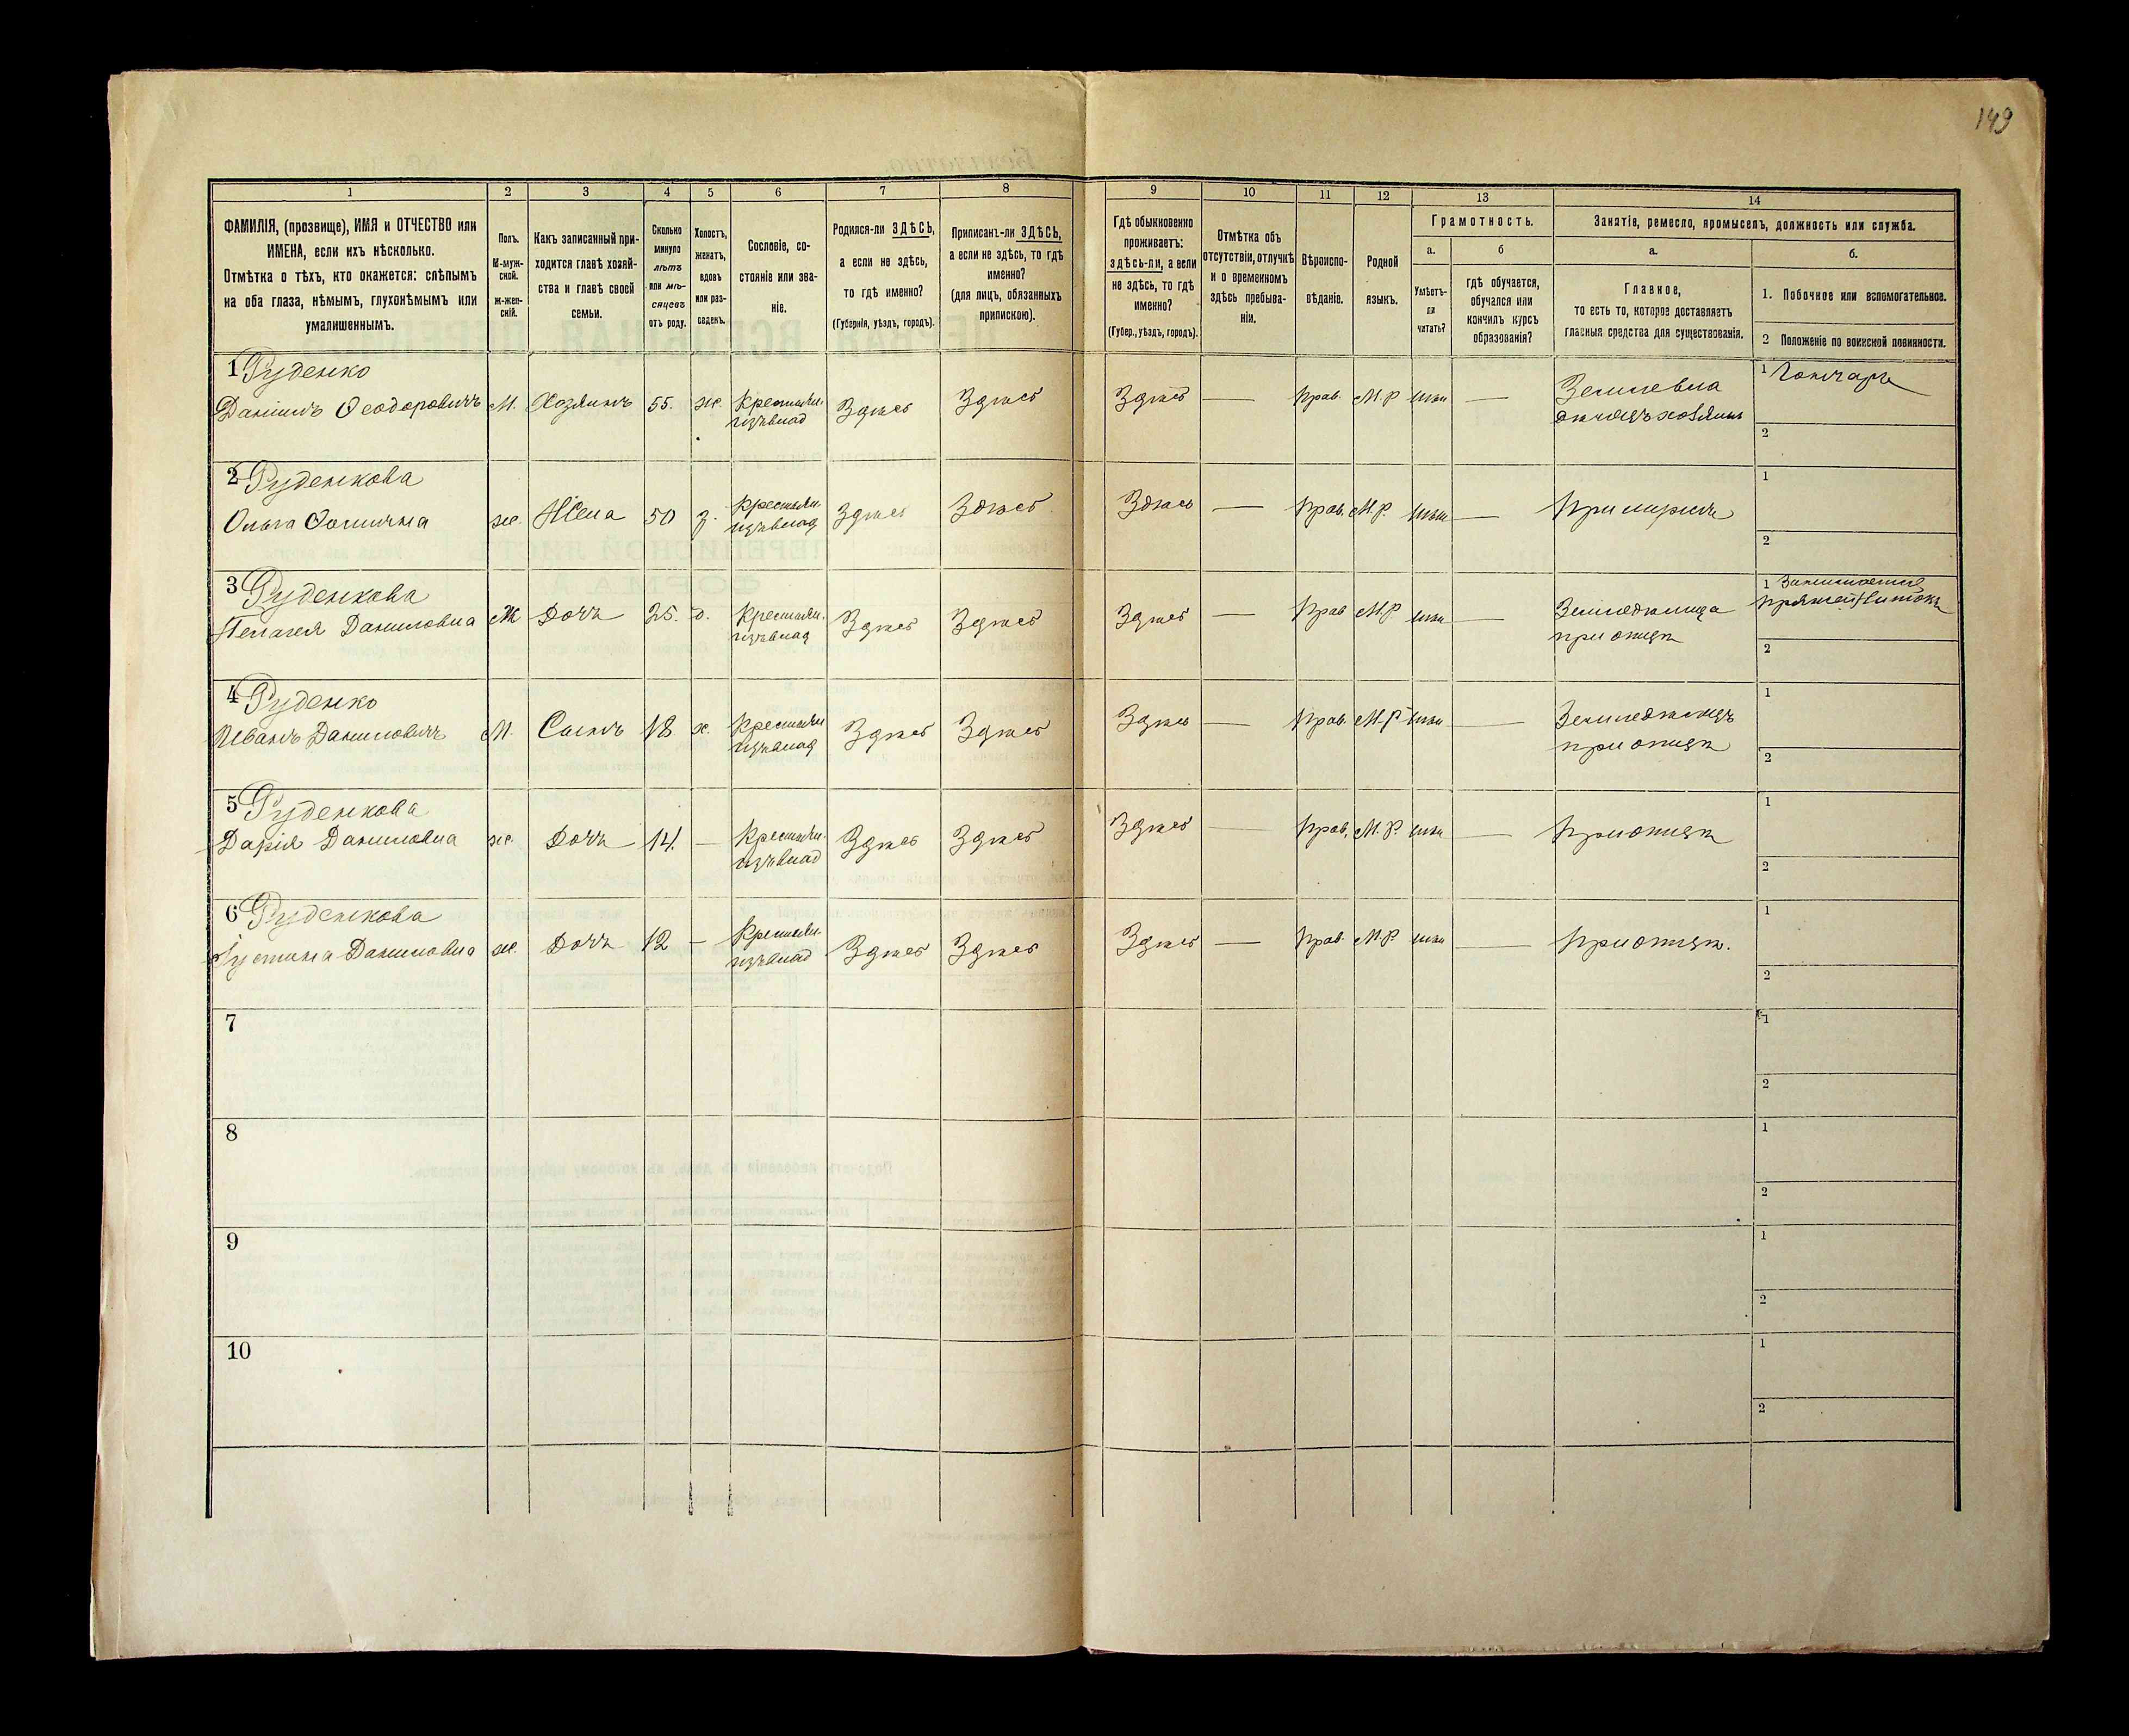 149
1 2 3 4 5 6 7 8 9 10 11 12 13 14
ФАМИЛІЯ, (прозвище), ИМЯ и ОТЧЕСТВО или
ИМЕНА, если ихъ нѣсколько.
Отмѣтка о тѣхъ, кто окажется: слѣпымъ
на оба глаза, нѣмымъ, глухонѣмымъ или
умалишеннымъ.
Полъ.
М-муж-
ской.
Ж-жен-
скій.
Какъ записанный при-
ходится главѣ хозяй-
ства и главѣ своей
семьи.
Сколько
минуло
лѣтъ
или мѣ-
сяцевъ
отъ роду.
Холостъ,
женатъ,
вдовъ
или раз-
веденъ.
Сословіе, со-
стояніе или зва-
ніе.
Родился-ли ЗДѢСЬ,
а если не здѣсь,
то гдѣ именно?
(Губернія, уѣздъ, городъ).
Приписанъ-ли ЗДѢСЬ,
а если не здѣсь, то гдѣ
именно?
(для лицъ, обязанныхъ
припискою).
Гдѣ обыкновенно
проживаетъ:
здѣсь-ли, а если
не здѣсь, то гдѣ
именно?
(Губер., уѣздъ, городъ).
Отмѣтка объ
отсутствіи, отлучкѣ
и о временномъ
здѣсь пребыва-
ніи.
Вѣроиспо-
вѣданіе.
Родной
языкъ.
Грамотность.
а.
Умѣетъ-
ли
читать?
б
гдѣ обучается,
обучался или
кончилъ курсъ
образованія?
Занятіе, ремесло, промыселъ, должность или служба.
а.
Главное,
то есть то, которое доставляетъ
главныя средства для существованія.
б.
1. Побочное или вспомогательное.
2 Положеніе по воинской повинности.
1 Руденко
Даніилъ Ѳеодоровичъ М. Хозяинъ 55. ж. Крестьян. изъ влад Здѣсь Здѣсь Здѣсь — Прав. М.Р. —
1 Гончаръ
2
2 Руденкова
Ольга ж. Жена 50 з. Крестьян. изъ влад Здѣсь Здѣсь Здѣсь — Прав. М.Р. —
1
2
3 Руденкова
Пелагея Даниловна Ж Дочь 25. д. Крестьян. изъ влад Здѣсь Здѣсь Здѣсь — Прав М.Р —
Земледѣлица
при отцѣ
1
2
4 Руденко
Иванъ Даниловичъ М. Сынъ 18. х. Крестьян изъ влад Здѣсь Здѣсь Здѣсь — Прав. М.Р —
Земледѣлецъ
при отцѣ
1
2
5 Руденкова
Дарія Даниловна ж. Дочь 14. — Крестьян. изъ влад Здѣсь Здѣсь Здѣсь — Прав. М.Р. — при отцѣ
1
2
6 Руденкова
Іустина Даниловна ж. Дочь 12 — Крестьян. изъ влад Здѣсь Здѣсь Здѣсь — Прав. М.Р. — при отцѣ.
1
2
7
1
2
8
1
2
9
1
2
10
1
2